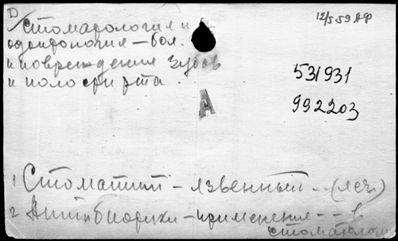 D
Стоматология и
одонтология – бол.
и повреждения зубов
и полости рта.
12/5 59
531931
992203
A
1 Стоматит – язвенный – (леч.)
2 Антибиотики – применение – – в
стоматологии